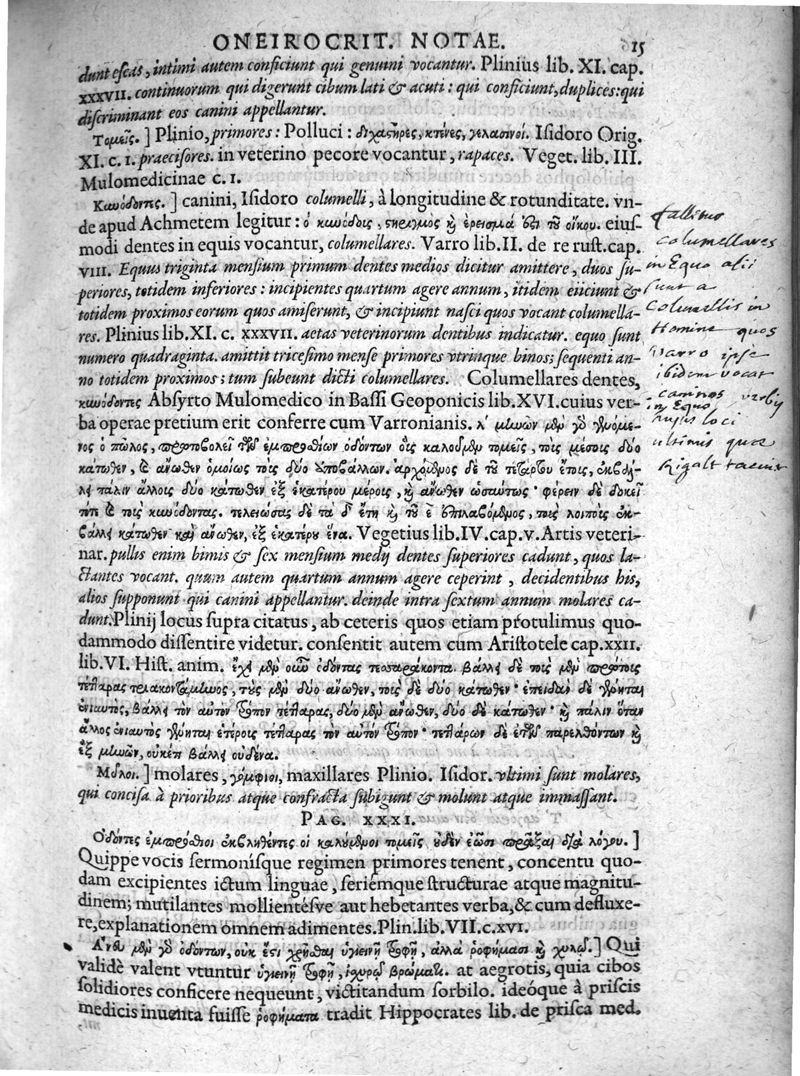 ONEIROCRIT. NOTAE. 15
dunt escas, intimi autem conficiunt qui genuini vocantur. Plinius lib. XI. cap.
XXXVII. continuorum qui digerunt cibum lati & acuti: qui conficiunt, duplices: qui
discriminant eos canini appellantur.
Τομεῖς. ] Plinio, primores: Polluci: διχαστῆρες, κτένες, γελασινοί. Isidoro Orig.
XI. c. 1. praecisores. in veterino pecore vocantur, rapaces. Veget. lib. III.
Mulomedicinae c. 1.
Κυνόδοντες. ] canini, Isidoro columelli, à longitudine & rotunditate. vn-
de apud Achmetem legitur: ὁ κυνόδους, στηριγμὸς καὶ ἔρεισμά ἐστι τοῦ οἴκου. eius-
modi dentes in equis vocantur, columellares. Varro lib. II. de re rust. cap.
VIII. Equus triginta mensium primum dentes medios dicitur amittere, duos su-
periores, totidem inferiores: incipientes quartum agere annum, itidem eiiciunt &
totidem proximos eorum quos amiserunt, & incipiunt nasci quos vocant columella-
res. Plinius lib. XI. c. XXXVII. aetas veterinorum dentibus indicatur. equo sunt
numero quadraginta. amittit tricesimo mense primores vtrinque binos; sequenti an-
no totidem proximos; tum subeunt dicti columellares. Columellares dentes,
κυνόδοντες Absyrto Mulomedico in Bassi Geoponicis lib. XVI. cuius ver-
ba operae pretium erit conferre cum Varronianis. λ' μηνῶν μὲν γὰρ γενόμε-
νος ὁ πῶλος, προβάλλει τῶν ἐμπροσθίων ὀδόντων οὓς καλοῦμεν τομεῖς, τοὺς μέσους δύο
κάτωθεν, καὶ ἄνωθεν ὁμοίως τοὺς δύο ὑποβάλλων. ἀρχόμενος δὲ τοῦ τετάρτου ἔτους, ἐκβάλ-
λει πάλιν ἄλλους δύο κάτωθεν ἐξ ἑκατέρου μέρους, καὶ ἄνωθεν ὡσαύτως· φέρειν δὲ δοκεῖ
τότε καὶ τοὺς κυνόδοντας. τελειώσας δὲ τὰ δ' ἔτη καὶ τοῦ ε' ἐπιλαβόμενος, τοὺς λοιποὺς ἐκ-
βάλλει κάτωθεν καὶ ἄνωθεν, ἐξ ἑκατέρου ἕνα. Vegetius lib. IV. cap. v. Artis veteri-
nar. pullis enim bimis & sex mensium medij dentes superiores cadunt, quos la-
ctantes vocant. quum autem quartum annum agere ceperint, decidentibus his,
alios supponunt qui canini appellantur. deinde intra sextum annum molares ca-
dunt. Plinij locus supra citatus, ab ceteris quos etiam protulimus quo-
dammodo dissentire videtur. consentit autem cum Aristotele cap. XXII.
lib. VI. Hist. anim. ἔχει μὲν οὖν ὀδόντας τεσσαράκοντα. βάλλει δὲ τοὺς μὲν πρώτους
τέτταρας τριακοντάμηνος, τοὺς μὲν δύο ἄνωθεν, τοὺς δὲ δύο κάτωθεν· ἐπειδὰν δὲ γένηται
ἐνιαυτὸς, βάλλει τὸν αὐτὸν τρόπον τέτταρας, δύο μὲν ἄνωθεν, δύο δὲ κάτωθεν· καὶ πάλιν ὅταν
ἄλλος ἐνιαυτὸς γένηται ἑτέρους τέτταρας τὸν αὐτὸν τρόπον· τεττάρων δὲ ἐτῶν παρελθόντων καὶ
ἓξ μηνῶν, οὐκέτι βάλλει οὐδένα.
Μύλοι. ] molares, γόμφιοι, maxillares Plinio. Isidor. vltimi sunt molares,
qui concisa à prioribus atque confracta subigunt & molunt atque immassant.
PAG. XXXI.
Ὀδόντες ἐμπρόσθιοι ἐκβληθέντες οἱ καλούμενοι τομεῖς οὐδὲν ἐῶσι πρᾶξαι διὰ λόγου. ]
Quippe vocis sermonísque regimen primores tenent, concentu quo-
dam excipientes ictum linguae, seriémque structurae atque magnitu-
dinem; mutilantes mollientésve aut hebetantes verba, & cum defluxe-
re, explanationem omnem adimentes. Plin. lib. VII. c. XVI.
Ἄνευ μὲν γὰρ ὀδόντων, οὐκ ἔστι χρῆσθαι ὑγιεινῇ τροφῇ, ἀλλὰ ῥοφήμασι καὶ χυλοῖς. ] Qui
validè valent vtuntur ὑγιεινῇ τροφῇ, ἰσχυροῖς βρώμασι. at aegrotis, quia cibos
solidiores conficere nequeunt, victitandum sorbilo. ideóque à priscis
medicis inuenta fuisse ῥοφήματα tradit Hippocrates lib. de prisca med.
fallitur
columellares
in Equo alii
sunt a
Columellis in
Homine quos
Varro ipse
ibidem vocat
caninos
in Equo verbis
hujus loci
ultimis quae
Rigalt tacuit